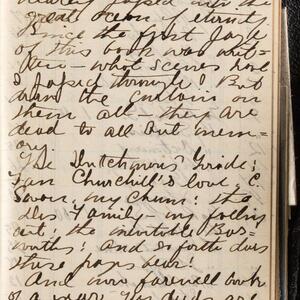 nearly lapsed into the
great ocean of eternity
Since the first page
of this book was writ=
ten — what scenes have
I passed through! But
down the curtain on
them all — they are
dead to all but mem=
ory.
The Dutchmens' Guide;
Fan Churchill's love, C.
my Chum; the
Family — my
out; the inevitable Bos=
worths! and so forth does
these pages bear!
And now farewell book
of a year